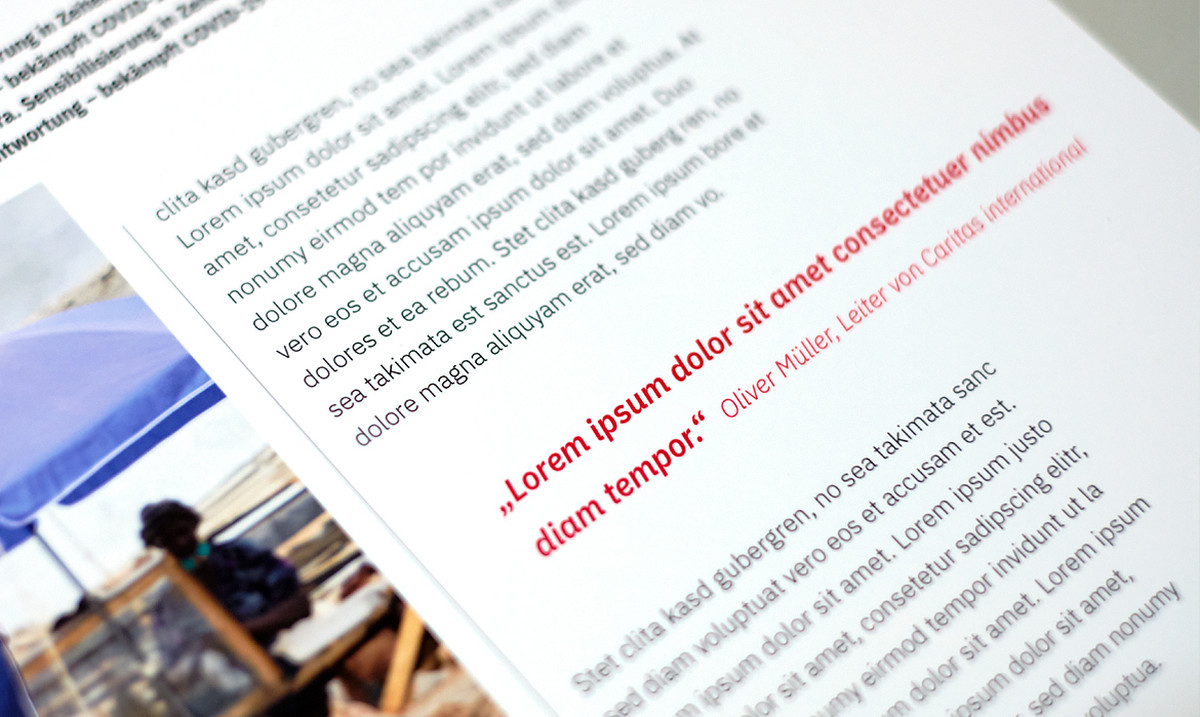 rung in Zeite
– bekämpft COVID-
ra. Sensibilisierung in Zei
ntwortung – bekämpft COVID-19
clita kasd gubergren, no sea takimata
Lorem ipsum dolor sit amet. Lorem ipsum
amet, consetetur sadipscing elitr, sed diam
nonumy eirmod tem por invidunt ut labore et
dolore magna aliquyam erat, sed diam voluptua. At
vero eos et accusam ipsum dolor sit amet. Duo
dolores et ea rebum. Stet clita kasd guberg ren, no
sea takimata est sanctus est. Lorem ipsum bore et
dolore magna aliquyam erat, sed diam vo.
„Lorem ipsum dolor sit amet consectetuer nimbus
diam tempor.“ Oliver Müller, Leiter von Caritas international
Stet clita kasd gubergren, no sea takimata sanc
sed diam voluptuat vero eos et accusam et est.
m ipsum dolor sit amet. Lorem ipsum justo
lor sit amet, consetetur sadipscing elitr,
numy eirmod tempor invidunt ut la
m dolor sit amet. Lorem ipsum
ipsum dolor sit amet,
sed diam nonumy
voluptua.